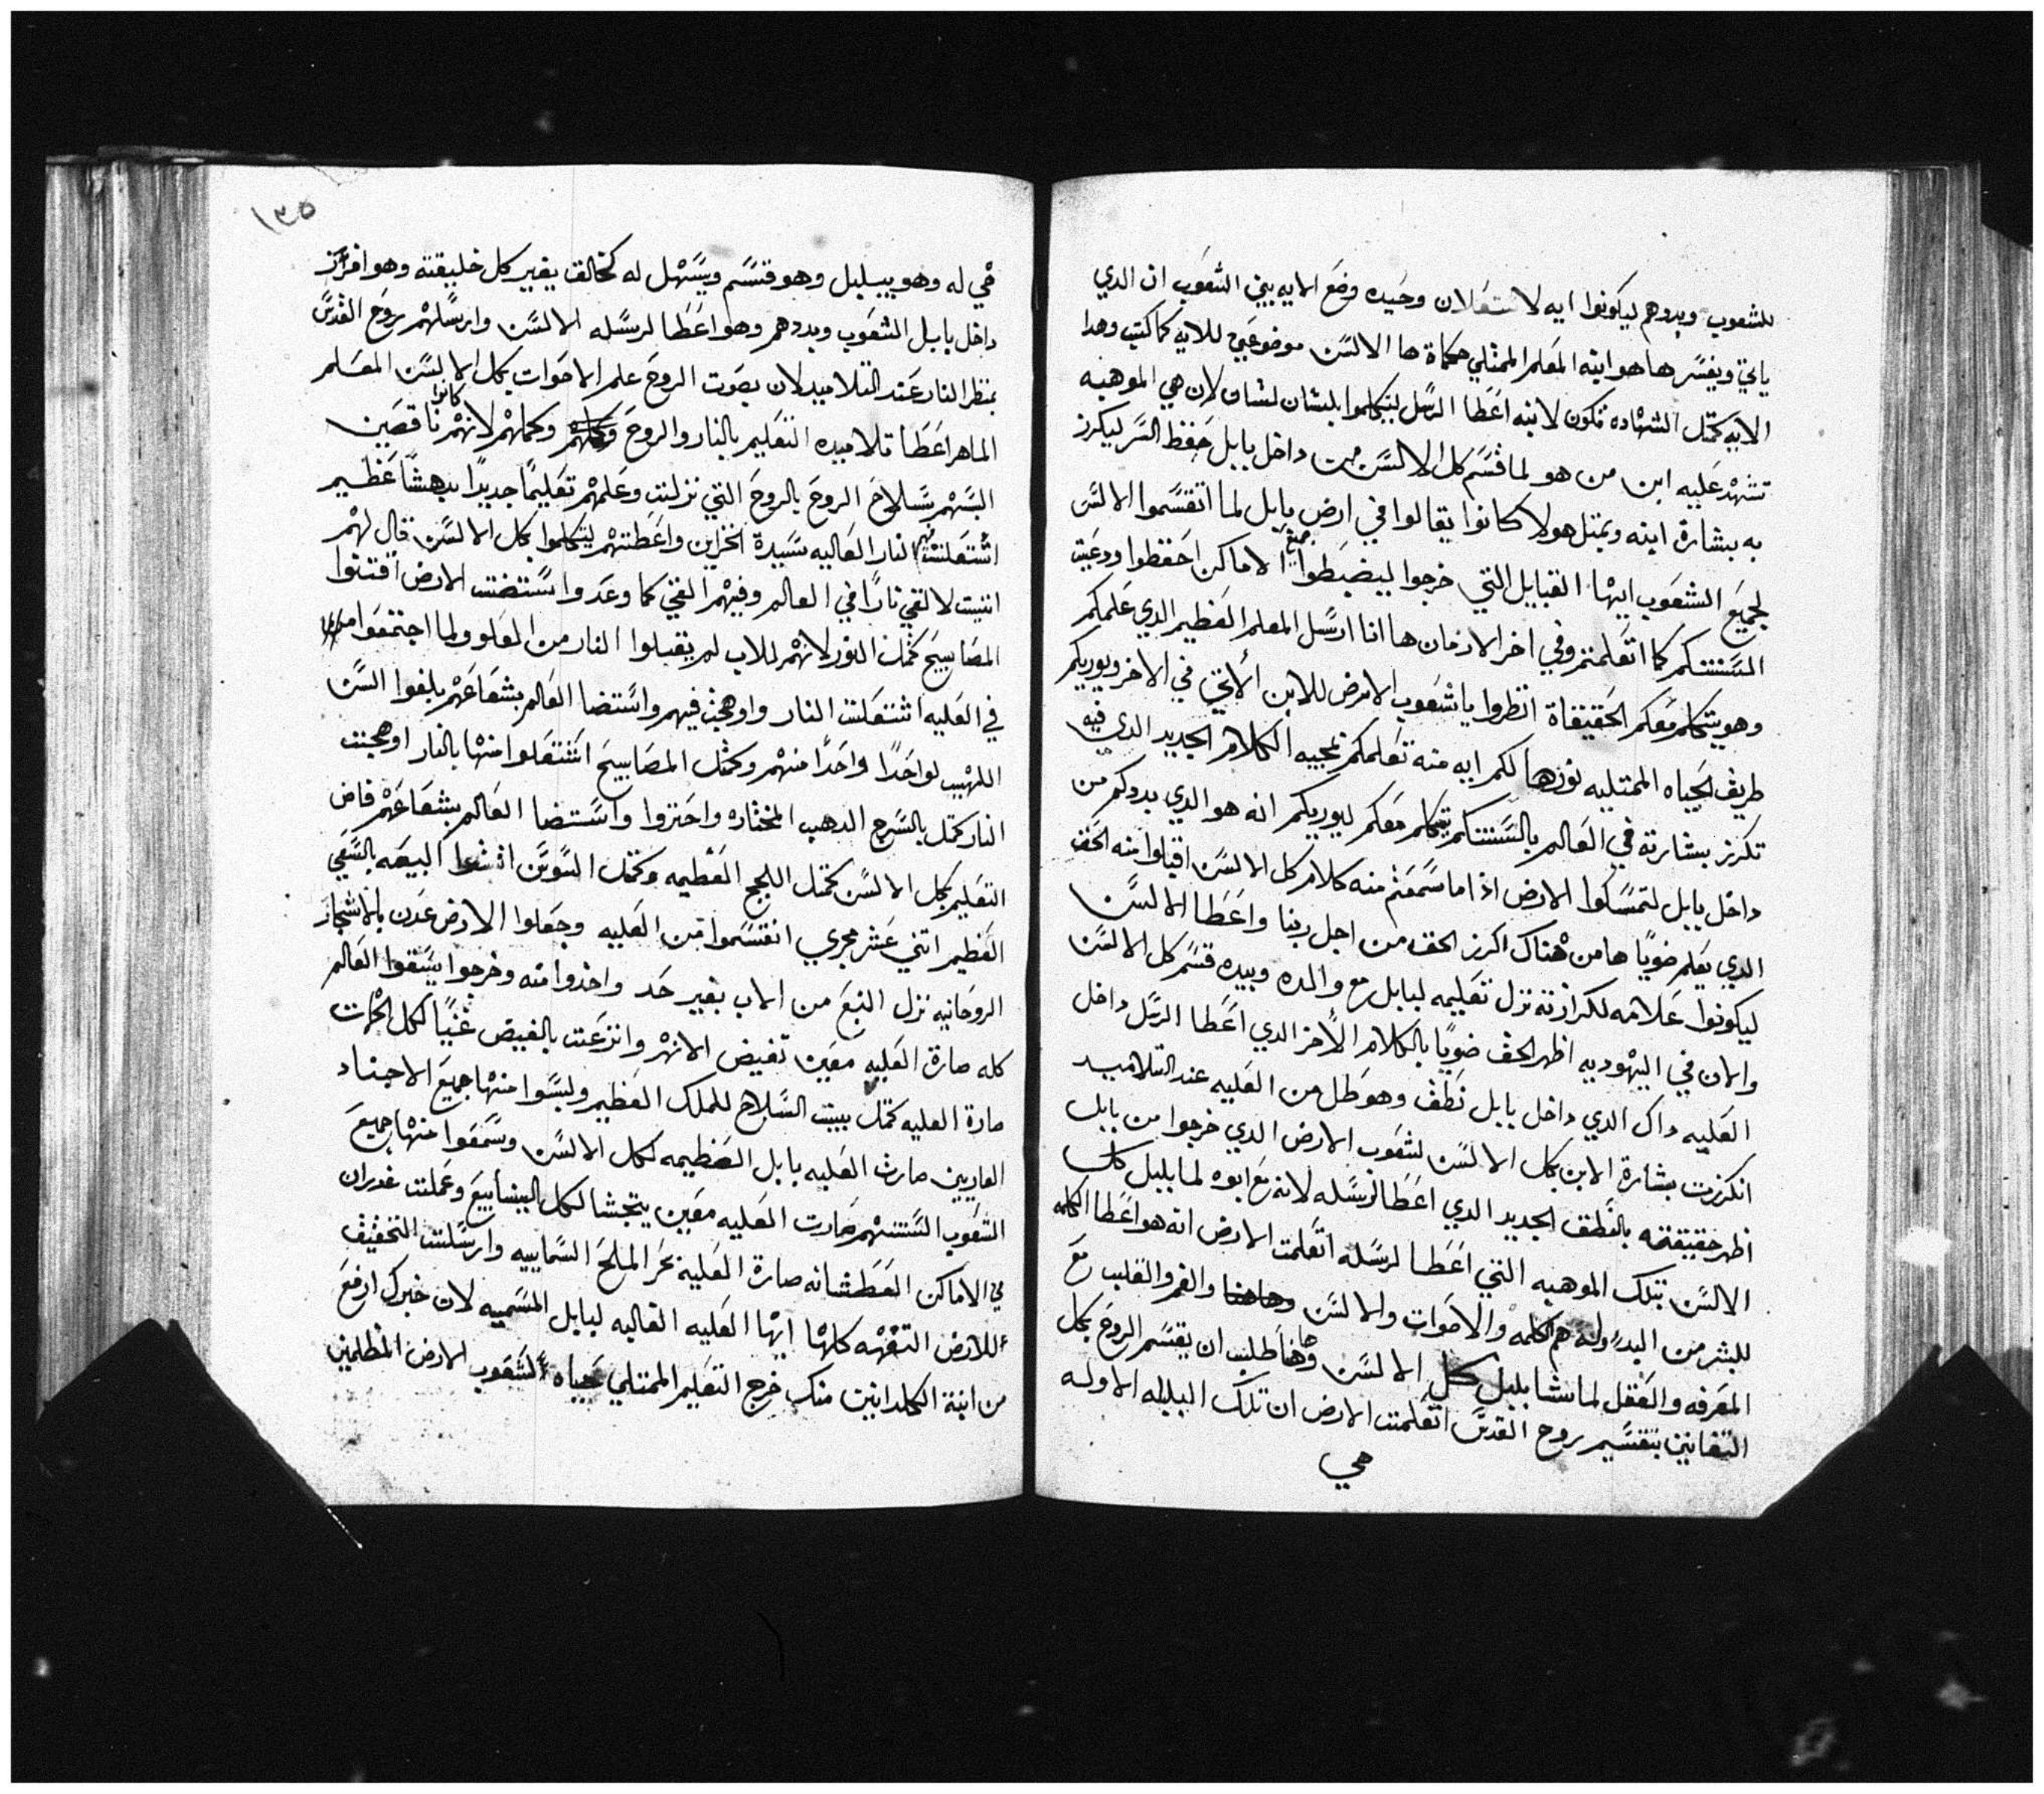 للشعوب وبددهم ليكونوا ايه لاستعلان وحيده وضع الايه بيني الشعوب ان الدي
ياتي ويفسر ها هو ابنه المعلم الممتلي حكماة ها الالسن موضوعين للايه كما كتب وهدا
الايه كمتل الشهاده تكون لابنه اعطا الرسل ليتكلموا بلسان لسان لان هي الموهبه
تشهد عليه ابن من هو لما قسم كل الالسن من داخل بابل حفظ السر ليكرز
به ببشارة ابنه وبمتل هولا كانوا يقالوا في ارض بابل لما اتقسموا الالسن
لجميع الشعوب ايها القبايل التي خرجوا ليضبطوا جميع الاماكن احفظوا ودعية
السنتكم كما اتعلمتم وفي اخر الازمان ها انا ارسل المعلم العظيم الدي علمكم
وهو يتكلم معكم الحقيقاة انظروا يا شعوب الارض للابن الاتي في الاخر ويوريكم
طريف الحياه الممتليه نورها لكم ايه منه تعلمكم بمجيه الكلام الجديد الدي فيه
تكرز بشارته في العالم بالسنتكم يتكلم معكم ليوريكم انه هو الدي بددكم من
داخل بابل لتمسكوا الارض اذا ما سمعتم منه كلام كل الالسن اقبلوا منه الحق
الدي يعلم ضويا ها من هناك اكرز الحق من اجل ربنا واعطا الالسن
ليكونوا علامه لكرازته نزل تعليمه لبابل مع والده وبيده قسم كل الالسن
والان في اليهوديه اظهر الحق ضويا بالكلام الاخر الدي اعطا الرسل داخل
العليه داك الدي داخل بابل نطف وهو طل من العليه عند التلاميد
انكرزت بشارة الابن بكل الالسن لشعوب الارض الدي خرجوا من بابل
اظهر حقيقته بالنطق الجديد الدي اعطا لرسله لانه مع ابوه لما بلبل كل
الالسن بتلك الموهبه التي اعطا لرسله اتعلمت الارض انه هو اعطا الكلمه
للبشر من البدء وله هم الكلمه والاصوات والالسن وهاهنا والفم والقلب مع
المعرفه والعقل لما شا بلبل كل الالسن وهاهنا طلب ان يقسم الروح بكل
التقانين بتقسيم روح القدس اتعلمت الارض ان تلك البلبله الاوله
هي
١٣٥
هي له وهو يبلبل وهو قسم ويسهل له كخالق يغير كل خليقته وهو افرز
داخل بابل الشعوب وبددهم وهو اعطا لرسله الالسن وارسلهم بروح القدس
بمنظر النار عند التلاميد لان بصوت الروح علم الاصوات بكل الالسن المعلم
الماهر اعطا تلاميده التعليم بالنار والروح وكلهم وكملهم لانهم كانوا ناقصين
البسهم سلاح الروح بالروح التي نزلت وعلمهم تعليما جديدا بدهشا عظيم
اشتعلت فيهم النار العاليه سيدة الخزاين واعطتهم ليتكلموا بكل الالسن قال لهم
انيت لالقي نارا في العالم وفيهم القي كما وعد واستضت الارض اقتنوا
المصابيح كمتل النور لانهم للاب لم يقبلوا النار من العلو ولما اجتمعوا
في العليه اشتعلت النار واوهجت فيهم واستضا العالم بشعاعهم بلغوا السن
اللهيب لواحدا واحدا منهم وكمتل المصابيح اشتعلوا منها بالنار اوهجت
النار كمتل بالسرج الدهب المختاره واحتزوا واستضا العالم بشعاعهم فاض
التعليم بكل الالسن كمتل اللجج العظيمه وكمتل السوسن انشوا البيعه بالسقي
العظيم اتني عشر مجري انقسموا من العليه وجعلوا الارض عدن بالاشجار
الروحانيه نزل النبع من الاب بغير حد واخدوا منه وخرجوا يسقوا العالم
كله صارة العليه معين تفيض الانهر وانزعت بالفيض غنيا لكل الجهات
صارة العليه كمتل بيت السلاح للملك العظيم ولبسوا منها جميع الاجناد
العاريين صارت العليه بابل العظيمه لكل الالسن وسمعوا منها جميع
الشعوب السنتهم صارت العليه معين يتجشا لكل الينابيع وعملت غدران
في الاماكن العطشانه صارة العليه بحر الملح السماييه وارسلت التخفيف
للارض التفهه كلها ايها العليه العاليه لبابل المسميه لان خبرك ارفع
من ابنة الكلدانين منك خرج التعليم الممتلي حياه لشعوب الارض المظلمين